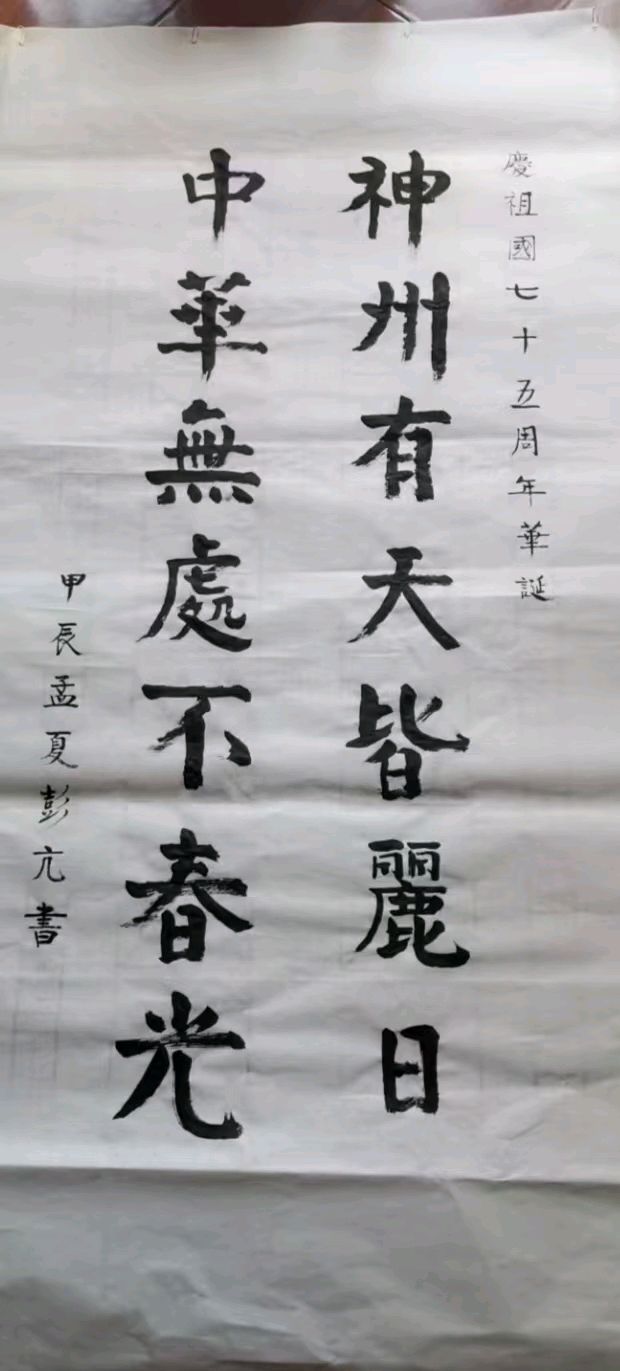 慶祖國七十五周年華誕
神州有天皆麗日
中華無處不春光
甲辰孟夏彭亢書